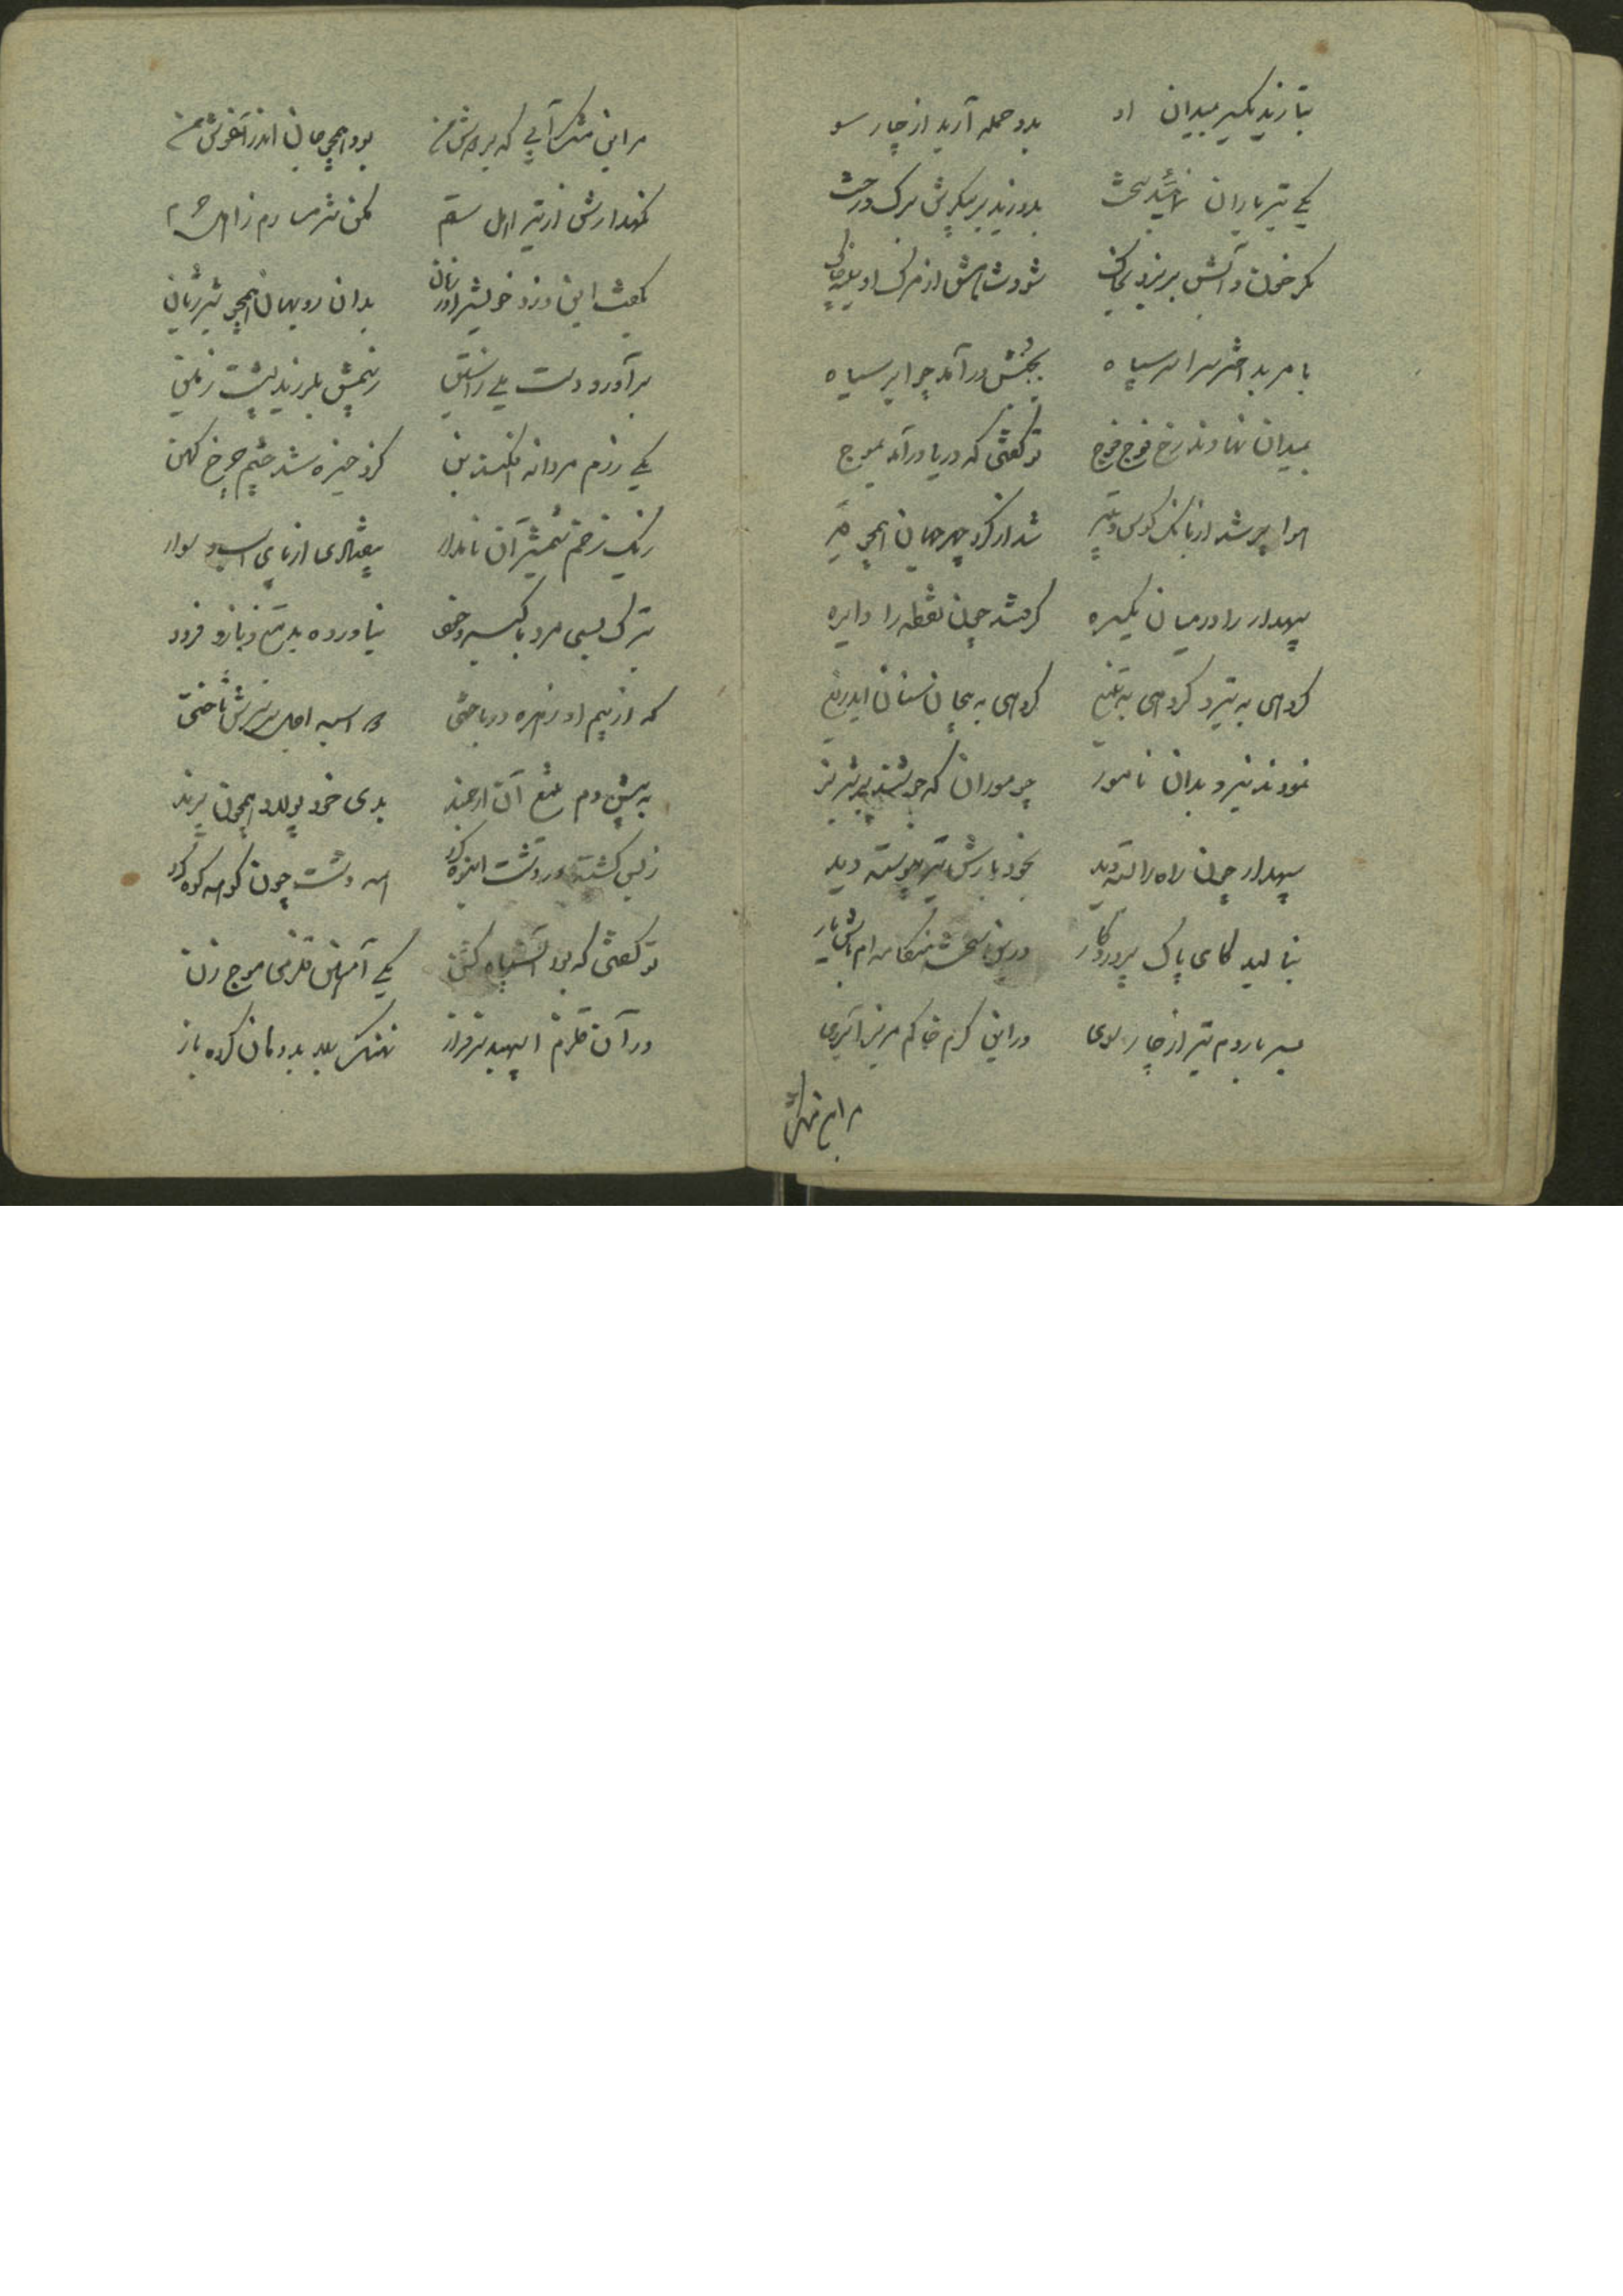 بتازید یکسر بمیدان او بدو حمله آرید از چار سو
یکی تیر باران نمائید سخت بدوزید بر پیکرش برک و رخت
مکر خون و آبش بریزد بخاک شود شاهش از مرک او بیمناک
بامر بد اختر سراسر سپاه بجنبش درآمد چو ابر سیاه
بمیدان نهادند رخ فوج فوج تو گفتی که دریا درآمد بموج
هوا پر شد از بانک کوس و نفیر شد از کرد چهر جهان همچو قیر
سپهدار را در میان یکسره کرفتند چون نقطه را دایره
کروهی به تیر و کروهی به تیغ کروهی به جان ستان بیدریغ
نمودند نیرو بدان نامور چو موران که جوشند بر شیر نر
سپهدار چون راه را بسته دید بخود بارش تیر پیوسته دید
بنالید کای پاک پروردکار درین سخت هنکامه ام باش یار
بسر باردم تیر از چار سوی در این کرم خاکم مریز آبروی
مر این مشک
مر این مشک آبی که بر دوش من بود همچو جان اندر آغوش من
نکهدارش از تیر اهل ستم مکن شرمسارم ز اهل حرم
بگفت این و زد خویش را در زمان بدان روبهان همچو شیر ژیان
برآورد دست یلی ز آستین ز بیمش بلرزید پشت زمین
یکی رزم مردانه افکند بن کزو خیره شد چشم چرخ کهن
ز یک زخم شمشیر آن نامدار بیفتادی از پای اسب و سوار
بترک بسی مرد با کبر و خود نیاورده بد تیغ و بازو فرود
که از بیم او زهره درباختی اسبه اجل بر سرش تاختی
به پیش دم تیغ آن ارجمند بدی خود پولاد همچون پرند
ز بس کشته در دشت انبوه کرد همه دشت چون کوهه کوه کرد
تو گفتی که بود آن سپاه کشن یکی آهنین قلزمی موج زن
در آن قلزم اسپهبد سرفراز نهنک بلا بد دهان کرده باز